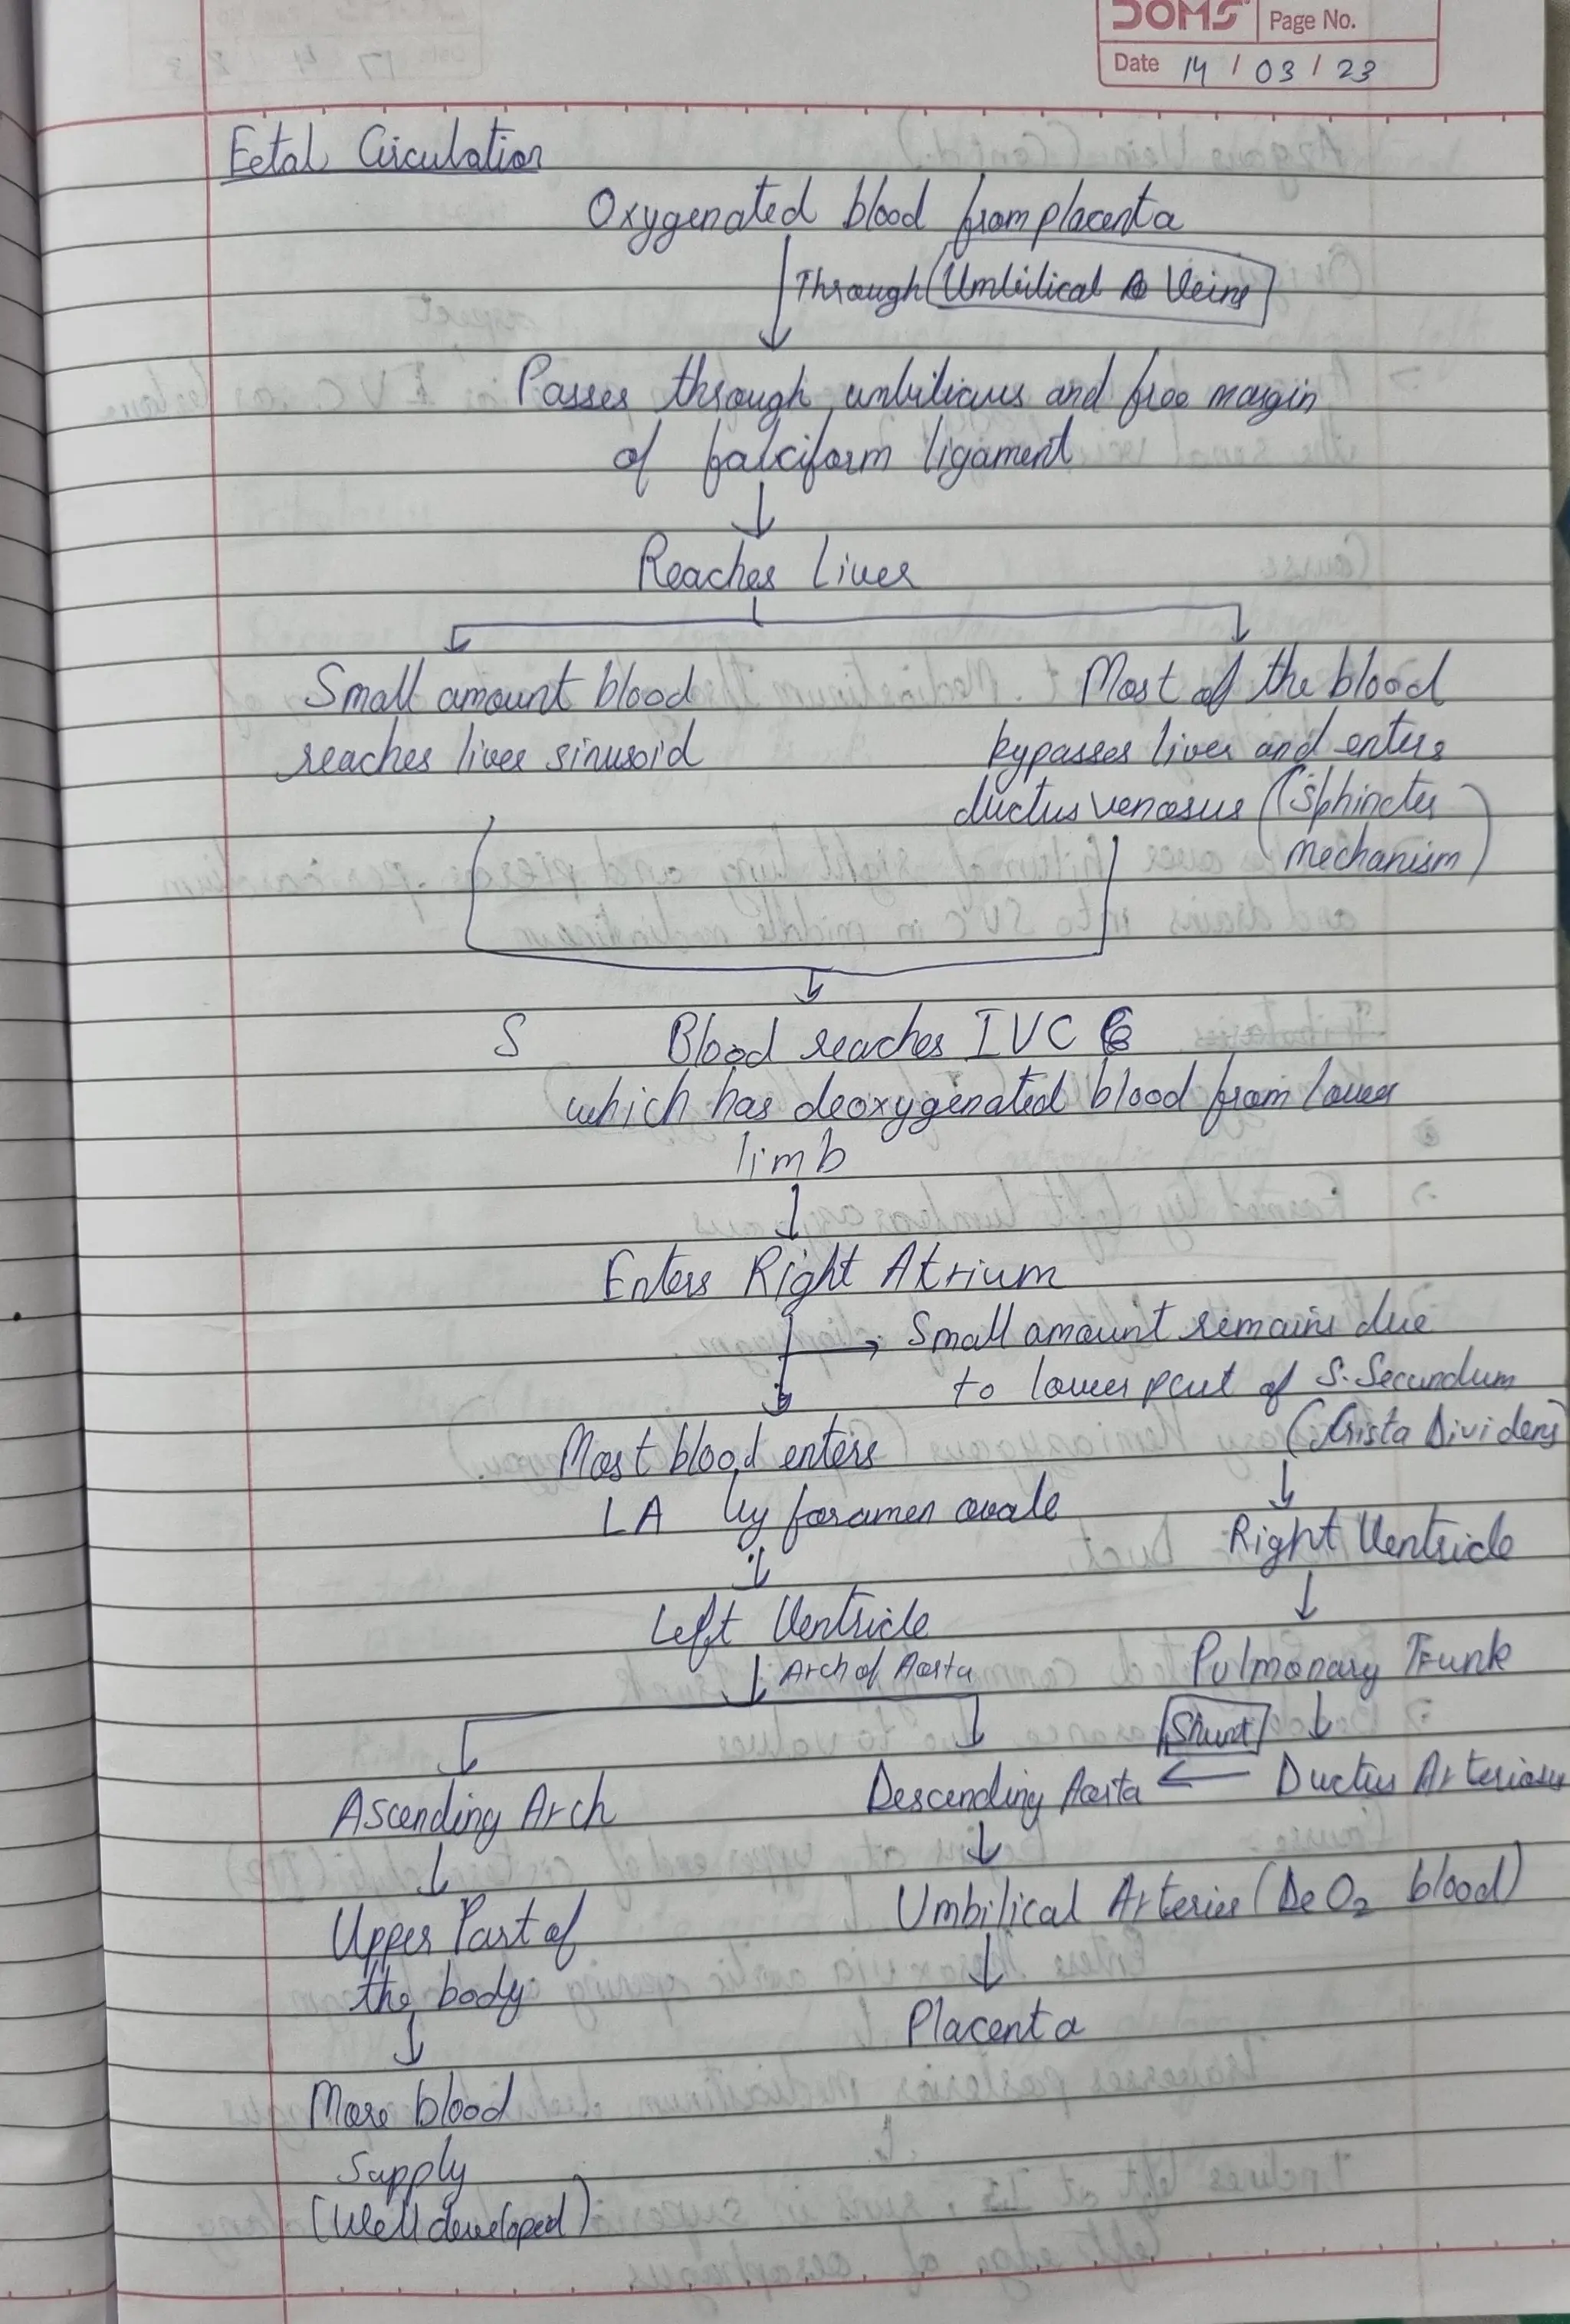 DOMS Page No.
Date 14 / 03 / 23
Fetal Circulation
Oxygenated blood from placenta
Through Umbilical Veins
Passes through umbilicus and free margin
of falciform ligament
Reaches Liver
Small amount blood
reaches liver sinusoid
Most of the blood
bypasses liver and enters
ductus venosus (Sphincter
mechanism)
S Blood reaches IVC
which has deoxygenated blood from lower
limb
Enters Right Atrium
Small amount remains due
to lower part of S. Secundum
(Crista Dividens)
Most blood enters
LA by foramen ovale
Right Ventricle
Left Ventricle
Arch of Aorta
Pulmonary Trunk
Shunt
Ascending Arch
Descending Aorta
Ductus Arteriosus
Upper Part of
the body
Umbilical Arteries (De O2 blood)
Placenta
More blood
Supply
(Well developed)